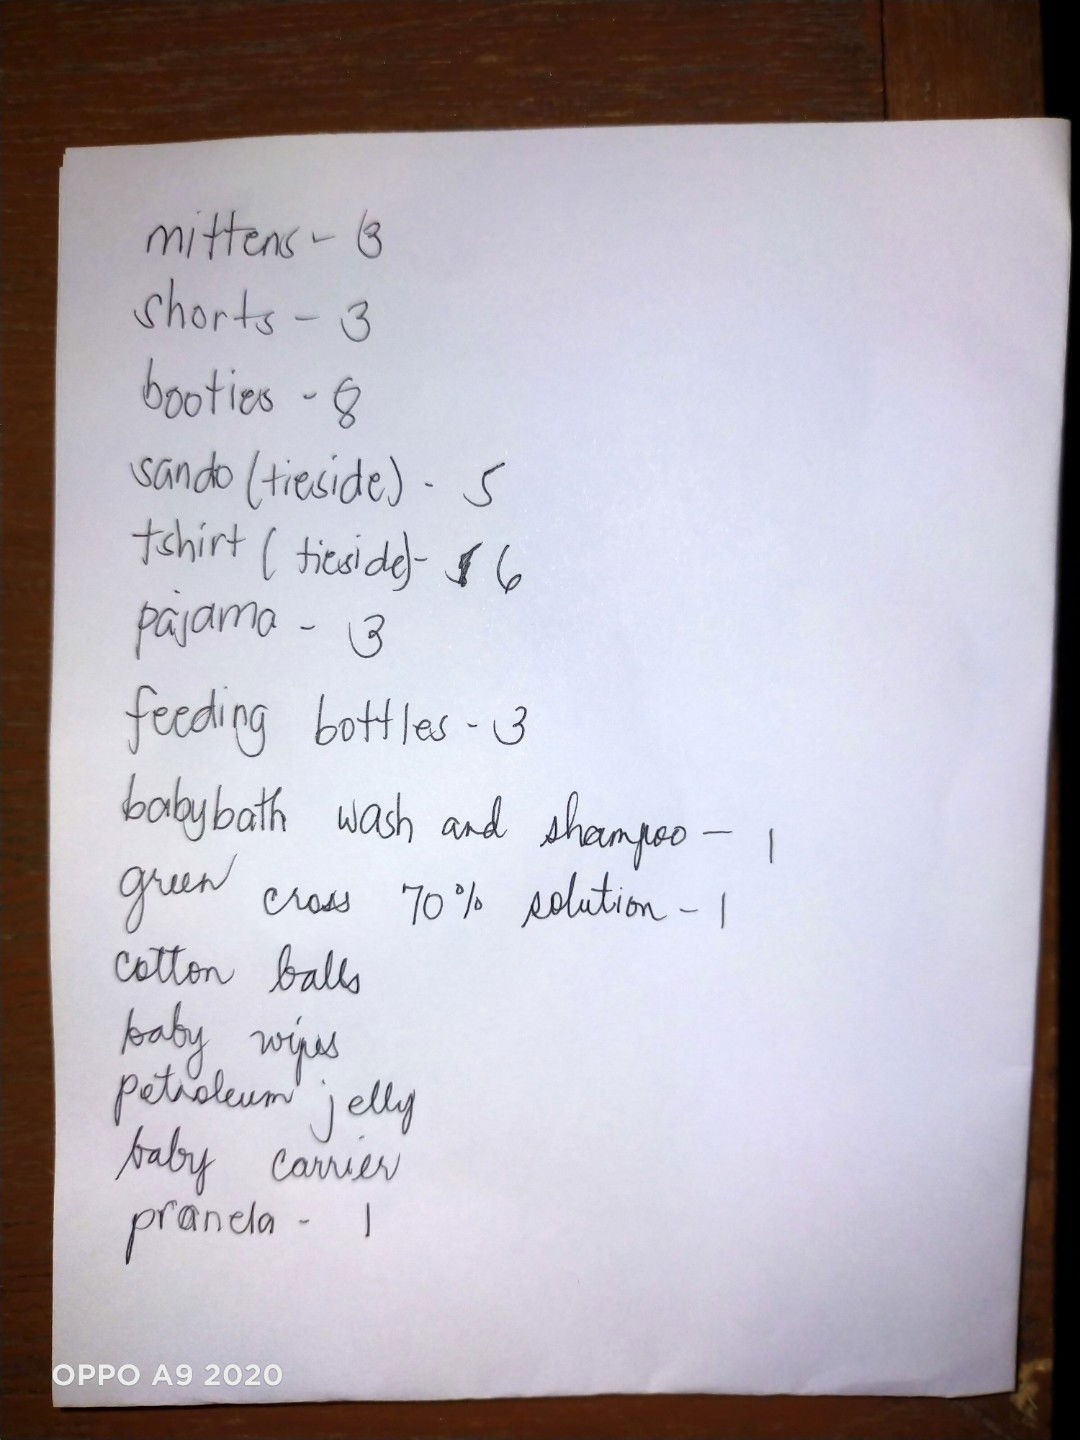 mittens - 3
shorts - 3
booties - 8
sando (tieside) - 5
tshirt ( tieside) - 6
pajama - 3
feeding bottles - 3
babybath wash and shampoo - 1
green cross 70% solution - 1
cotton balls
baby wipes
petroleum jelly
baby carrier
pranela - 1
OPPO A9 2020